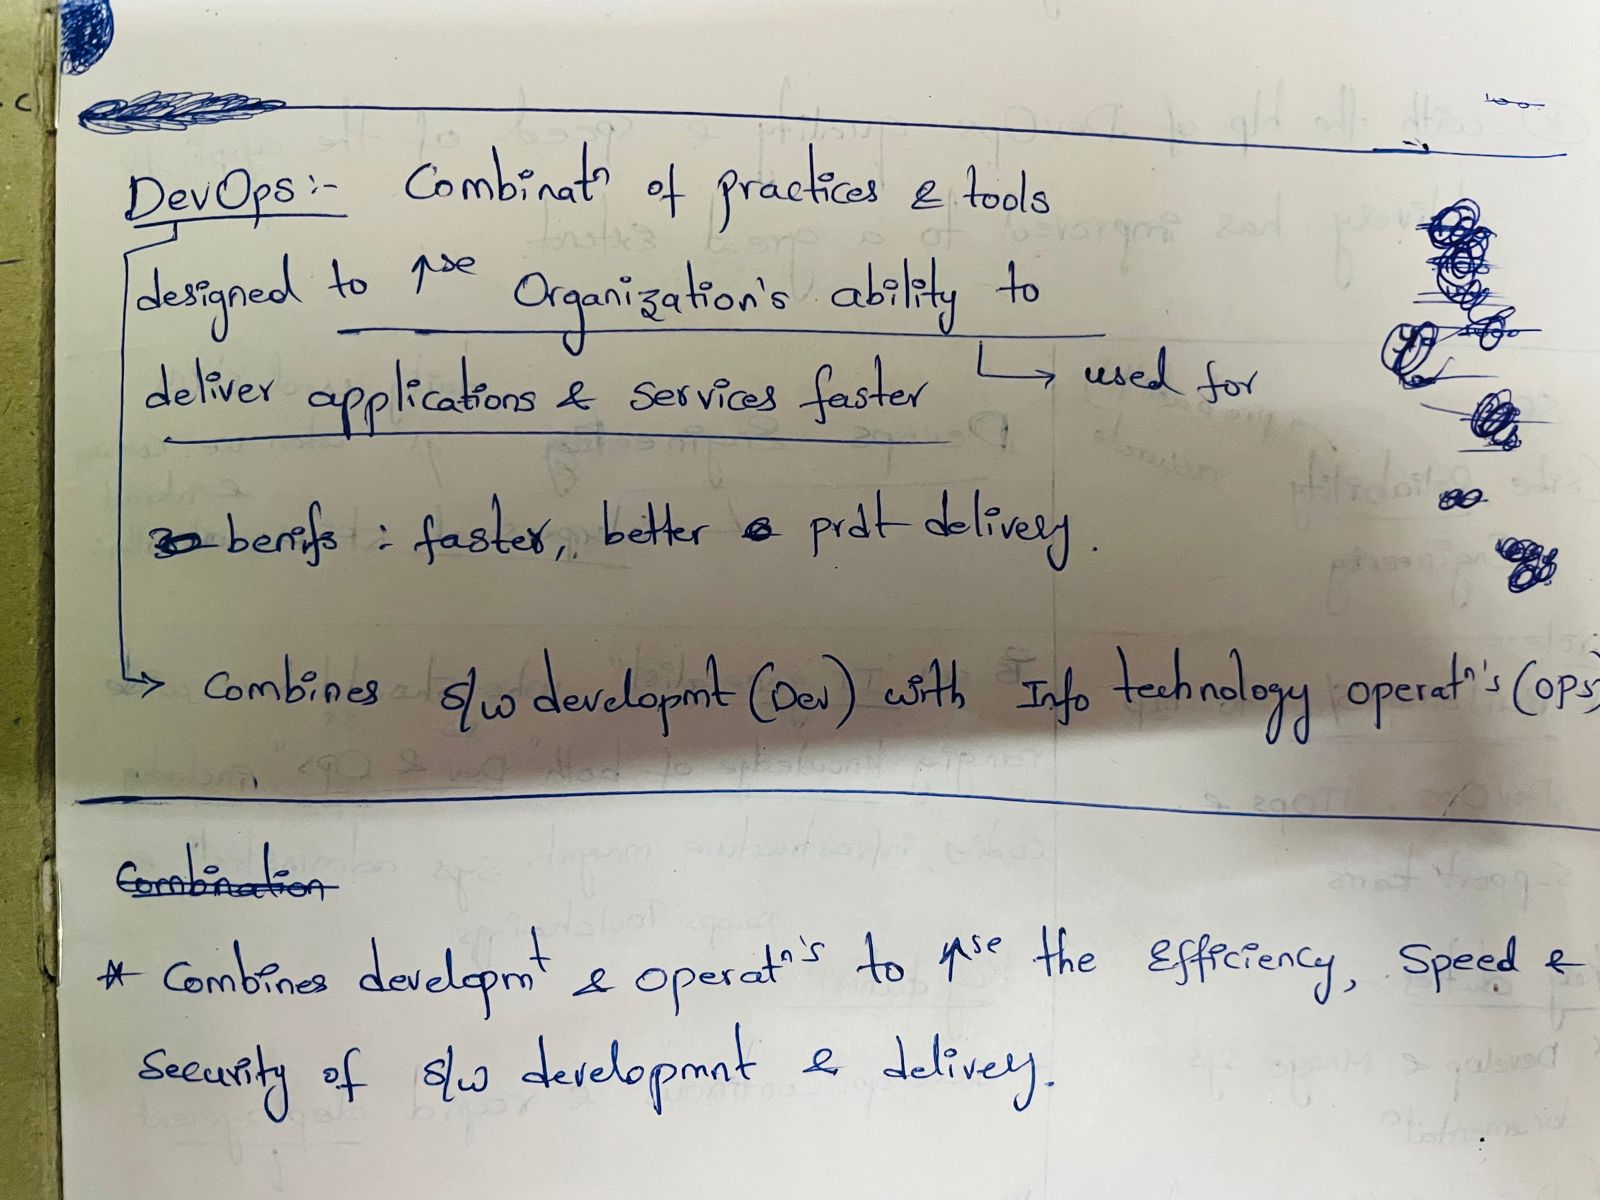 DevOps :- Combinatⁿ of practices & tools
designed to ↑se Organization's ability to
deliver applications & services faster
↳ used for
benifs : faster, better prdt delivery.
↳ Combines s/w developmt (Dev) with Info technology operatⁿ's (OPS)
Combination
* Combines developmᵗ & operatⁿ's to ↑se the Efficiency, Speed &
Security of s/w developmnt & delivery.